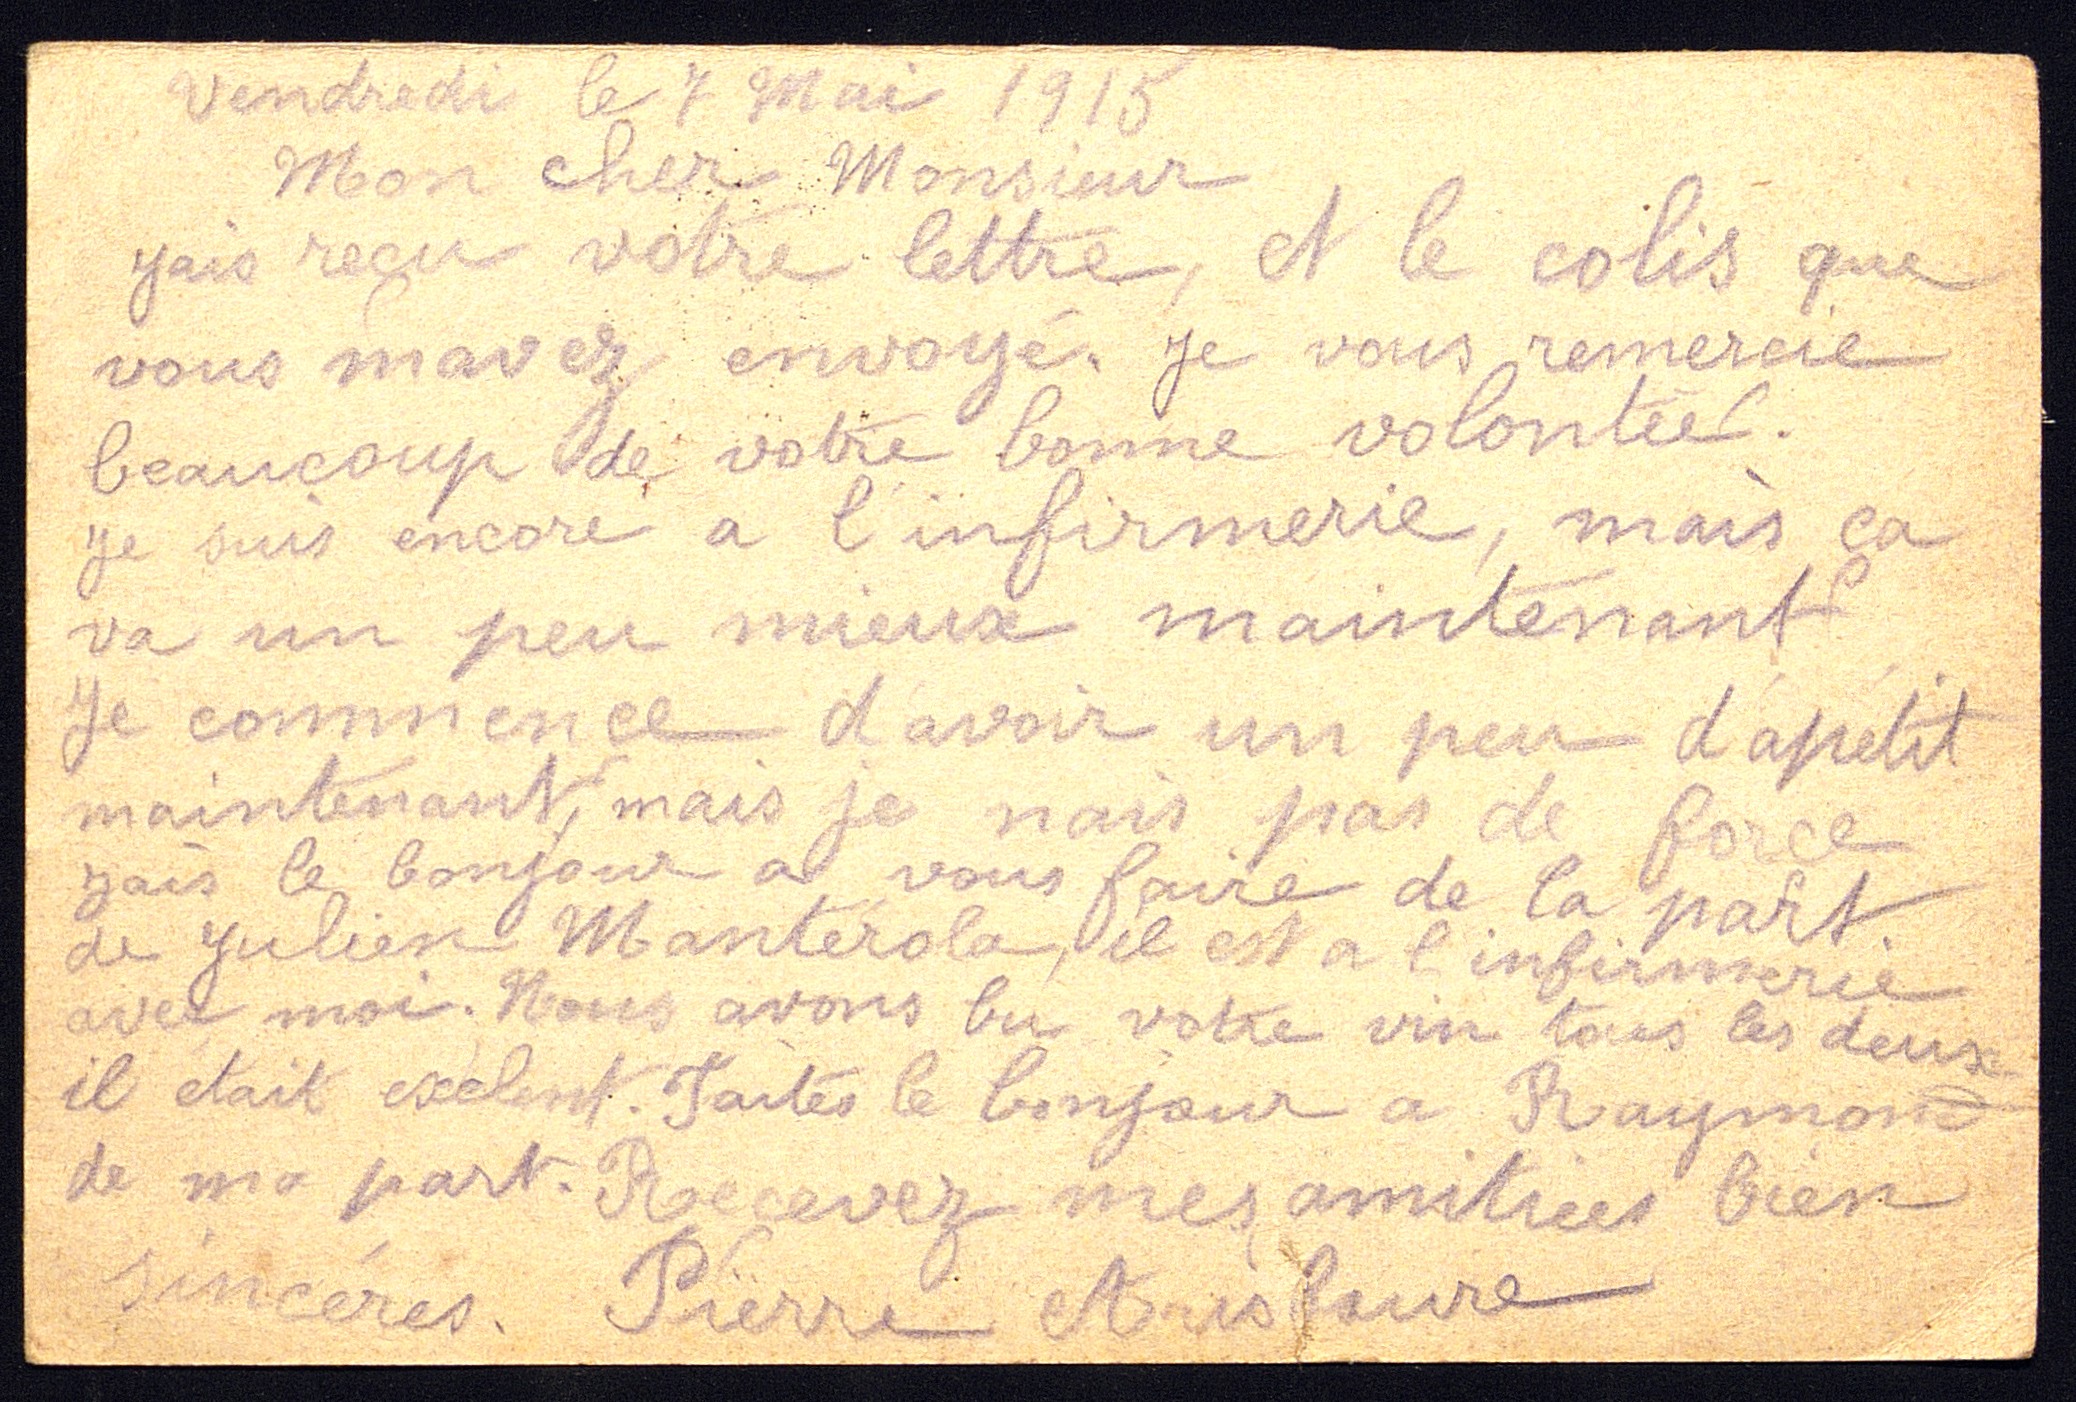 Vendredi le 7 Mai 1915
Mon cher Monsieur
Jais reçu votre lettre, et le colis que
vous mavez envoyé. Je vous remercie
beaucoup de votre bonne volontée.
Je suis encore a l'infirmerie, mais ça
va un peu mieux maintenant
Je commence d'avoir un peu d'apétit
maintenant, mais je nais pas de force
jais le bonjour a vous faire de la part
de Julien Manterola, il est a l'infirmerie
avec moi. Nous avons bu votre vin tous les deux
il était exelent. Faites le bonjour a Raymond
de ma part. Recevez mes amitiées bien
sincéres. Pierre